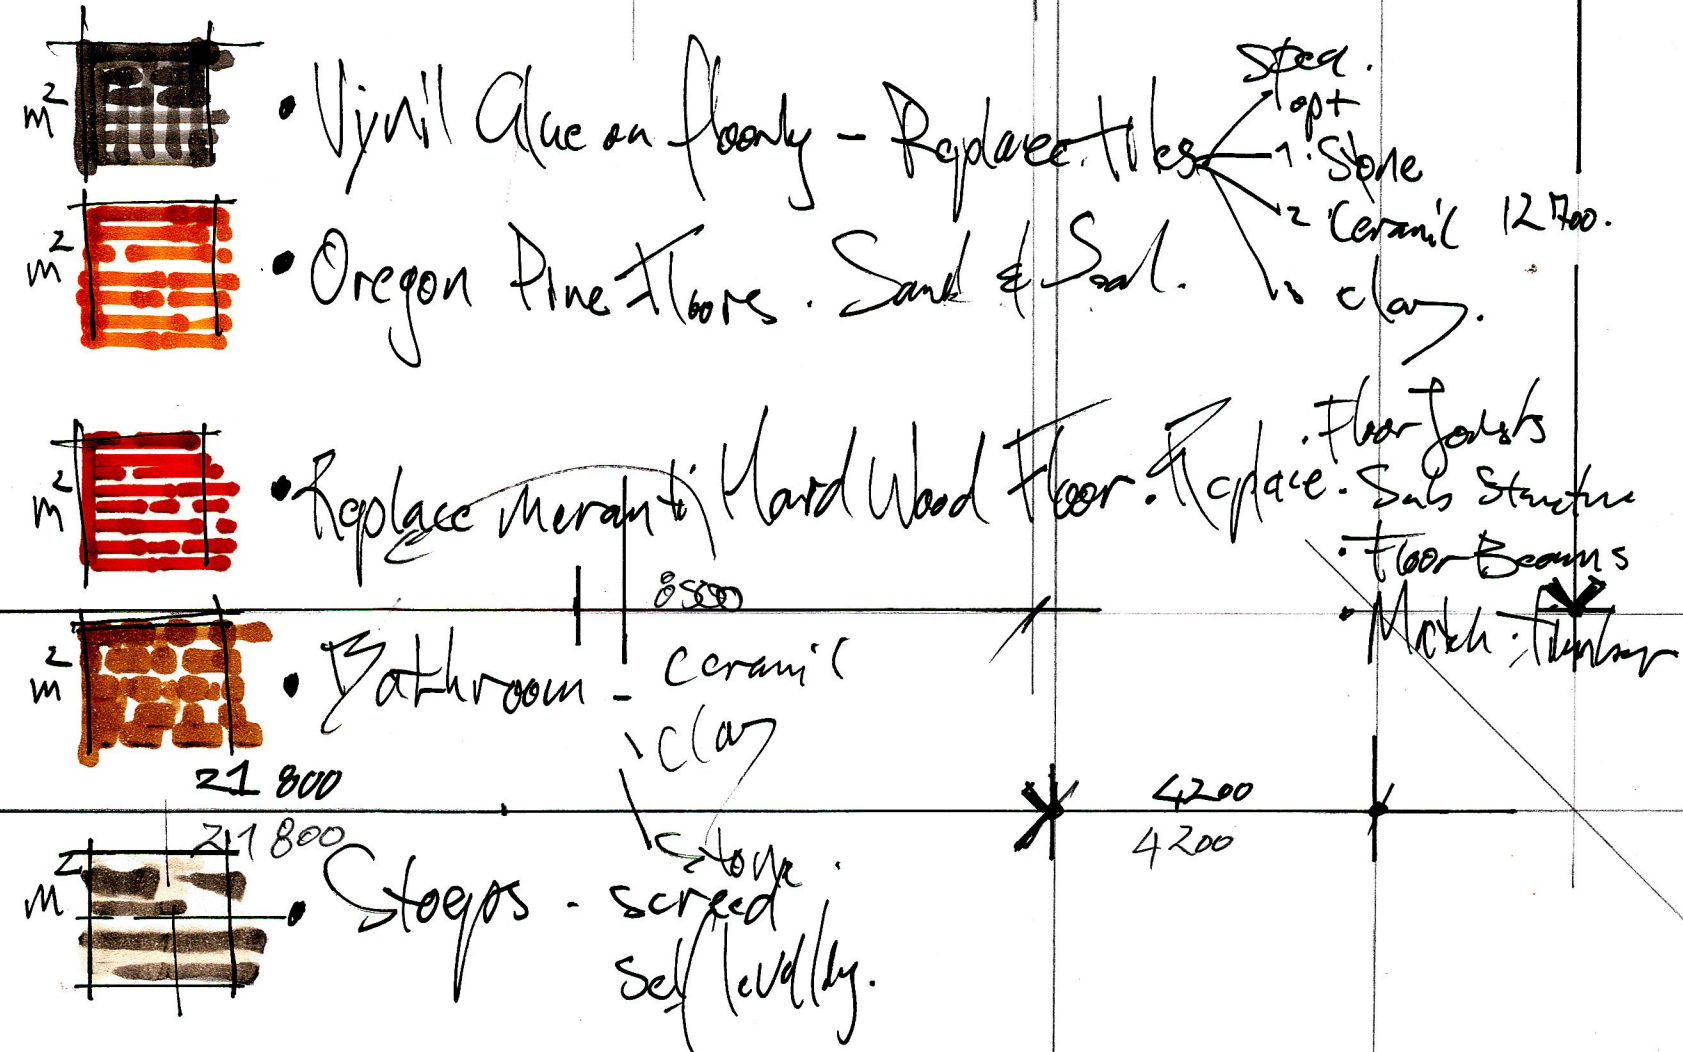 m²
• Vynil Glue on floorly - Replace tiles
spec.
opt
1. Stone
2 Ceramic
3 clay.
12 700.
m²
• Oregon Pine Floors. Sand & Seal.
m²
• Replace Meranti Hard Wood Floor. Replace
• Floor Joists
• Sub Structure
• Floor Beams
• Match
8500
m²
• Bathroom - ceramic
clay
stone
21 800
4200
21 800
4200
m²
• Stoeps - screed
self levelling.